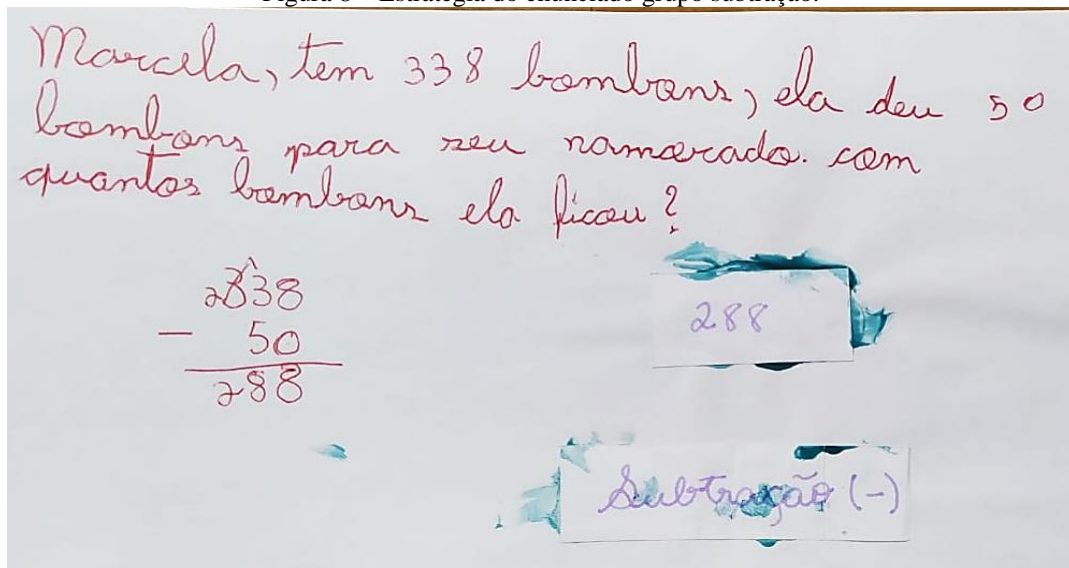 Marcela, tem 338 bombons, ela deu 50
bombons para seu namorado. com
quantos bombons ela ficou?
2338
- 50
288
288
Subtração (-)